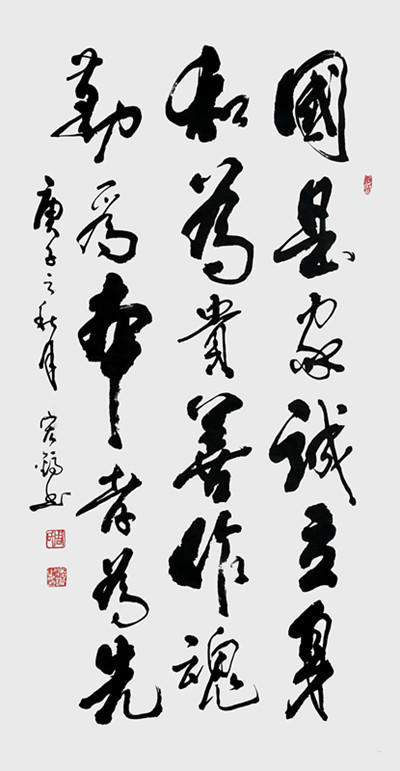 國是家誠立身
和為貴善作魂
勤為本孝為先
庚子之秋月 宏 书